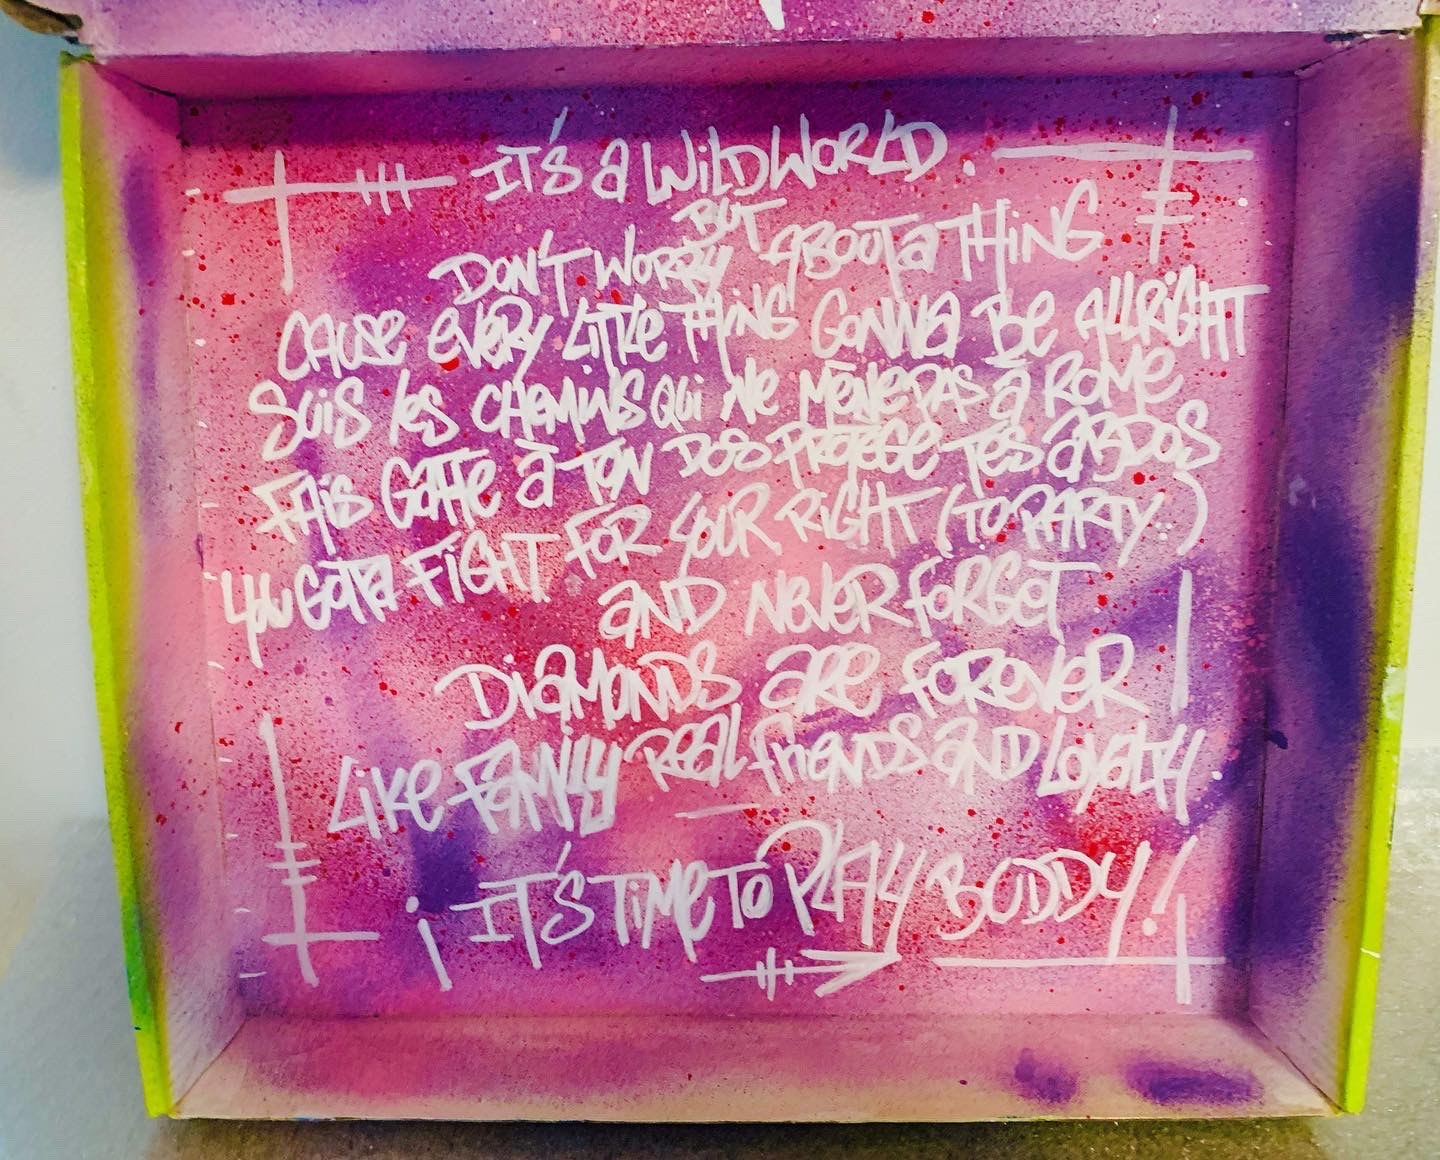 IT'S A WILD WORLD.
BUT
DON'T WORRY ABOUT A THING
CAUSE EVERY LITTLE THING GONNA BE ALLRIGHT
SUIS les CHEMINS QUI NE MÈNE PAS à ROME
FAIS GAFFE à TON DOS PROTEGE TES ABDOS
YOU GOTTA FIGHT FOR YOUR RIGHT (TO PARTY)
AND NEVER FORGET
DIAMONDS ARE FOREVER
LIKE FAMILY REAL friends AND LOYALTY
¡ IT'S TIME TO PLAY BUDDY!